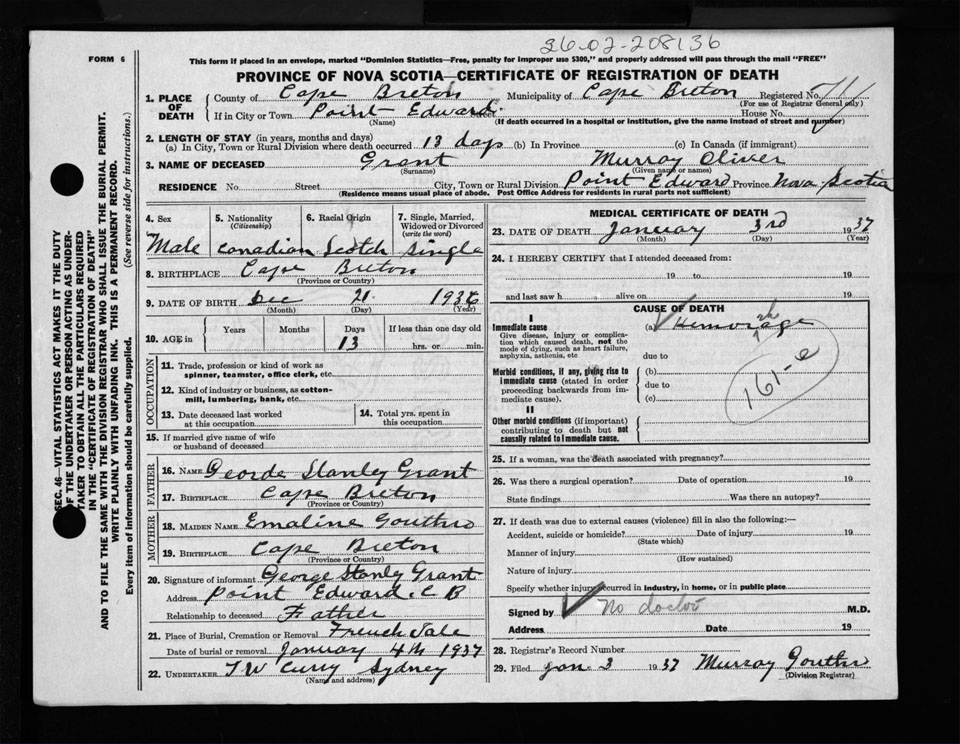 36-02-208136
FORM 6
This form if placed in an envelope, marked "Dominion Statistics—Free, penalty for improper use $300," and properly addressed will pass through the mail "FREE"
PROVINCE OF NOVA SCOTIA—CERTIFICATE OF REGISTRATION OF DEATH
1. PLACE OF DEATH County of Cape Breton Municipality of Cape Breton Registered No.
(For use of Registrar General only)
If in City or Town Point Edward House No.
(Name) (If death occurred in a hospital or institution, give the name instead of street and number)
2. LENGTH OF STAY (in years, months and days)
(a) In City, Town or Rural Division where death occurred 13 days (b) In Province (c) In Canada (if immigrant)
3. NAME OF DECEASED Grant Murray Oliver
(Surname) (Given name or names)
RESIDENCE No. Street City, Town or Rural Division Point Edward Province Nova Scotia
(Residence means usual place of abode. Post Office Address for residents in rural parts not sufficient)
4. Sex 5. Nationality (Citizenship) 6. Racial Origin 7. Single, Married, Widowed or Divorced (write the word)
Male Canadian Scotch Single
8. BIRTHPLACE Cape Breton
(Province or Country)
9. DATE OF BIRTH Dec 21 1936
(Month) (Day) (Year)
10. AGE in Years Months Days If less than one day old
13 hrs. or min.
OCCUPATION
11. Trade, profession or kind of work as
spinner, teamster, office clerk, etc.
12. Kind of industry or business, as cotton-
mill, lumbering, bank, etc.
13. Date deceased last worked
at this occupation
14. Total yrs. spent in
this occupation
15. If married give name of wife
or husband of deceased
FATHER
16. Name Georde Stanley Grant
17. Birthplace Cape Breton
(Province or Country)
MOTHER
18. Maiden Name Emaline Gouthro
19. Birthplace Cape Breton
(Province or Country)
20. Signature of informant George Stanly Grant
Address Point Edward. C B
Relationship to deceased Father
21. Place of Burial, Cremation or Removal French Vale
Date of burial or removal January 4th 1937
22. Undertaker T W Curry Sydney
(Name and address)
MEDICAL CERTIFICATE OF DEATH
23. DATE OF DEATH January 3rd 1937
(Month) (Day) (Year)
24. I HEREBY CERTIFY that I attended deceased from:
19 to 19
and last saw h alive on 19
CAUSE OF DEATH
I
Immediate cause (a) Hemorage
rh
Give disease, injury or complica-
tion which caused death, not the
mode of dying, such as heart failure,
asphyxia, asthenia, etc
due to
Morbid conditions, if any, giving rise to
immediate cause (stated in order
proceeding backwards from im-
mediate cause).
(b)
due to
(c)
161-e
II
Other morbid conditions (if important)
contributing to death but not
causally related to immediate cause.
25. If a woman, was the death associated with pregnancy?
26. Was there a surgical operation? Date of operation 19
State findings Was there an autopsy?
27. If death was due to external causes (violence) fill in also the following:—
Accident, suicide or homicide? Date of injury 19
(State which)
Manner of injury
(How sustained)
Nature of injury
Specify whether injury occurred in industry, in home, or in public place
Signed by No doctor M.D.
Address Date 19
28. Registrar's Record Number
29. Filed Jan 3 1937 Murray Gouthro
(Division Registrar)
SEC. 46—VITAL STATISTICS ACT MAKES IT THE DUTY
OF THE UNDERTAKER OR PERSON ACTING AS UNDER-
TAKER TO OBTAIN ALL THE PARTICULARS REQUIRED
IN THE "CERTIFICATE OF REGISTRATION OF DEATH"
AND TO FILE THE SAME WITH THE DIVISION REGISTRAR WHO SHALL ISSUE THE BURIAL PERMIT.
WRITE PLAINLY WITH UNFADING INK. THIS IS A PERMANENT RECORD.
Every item of information should be carefully supplied. (See reverse side for instructions.)